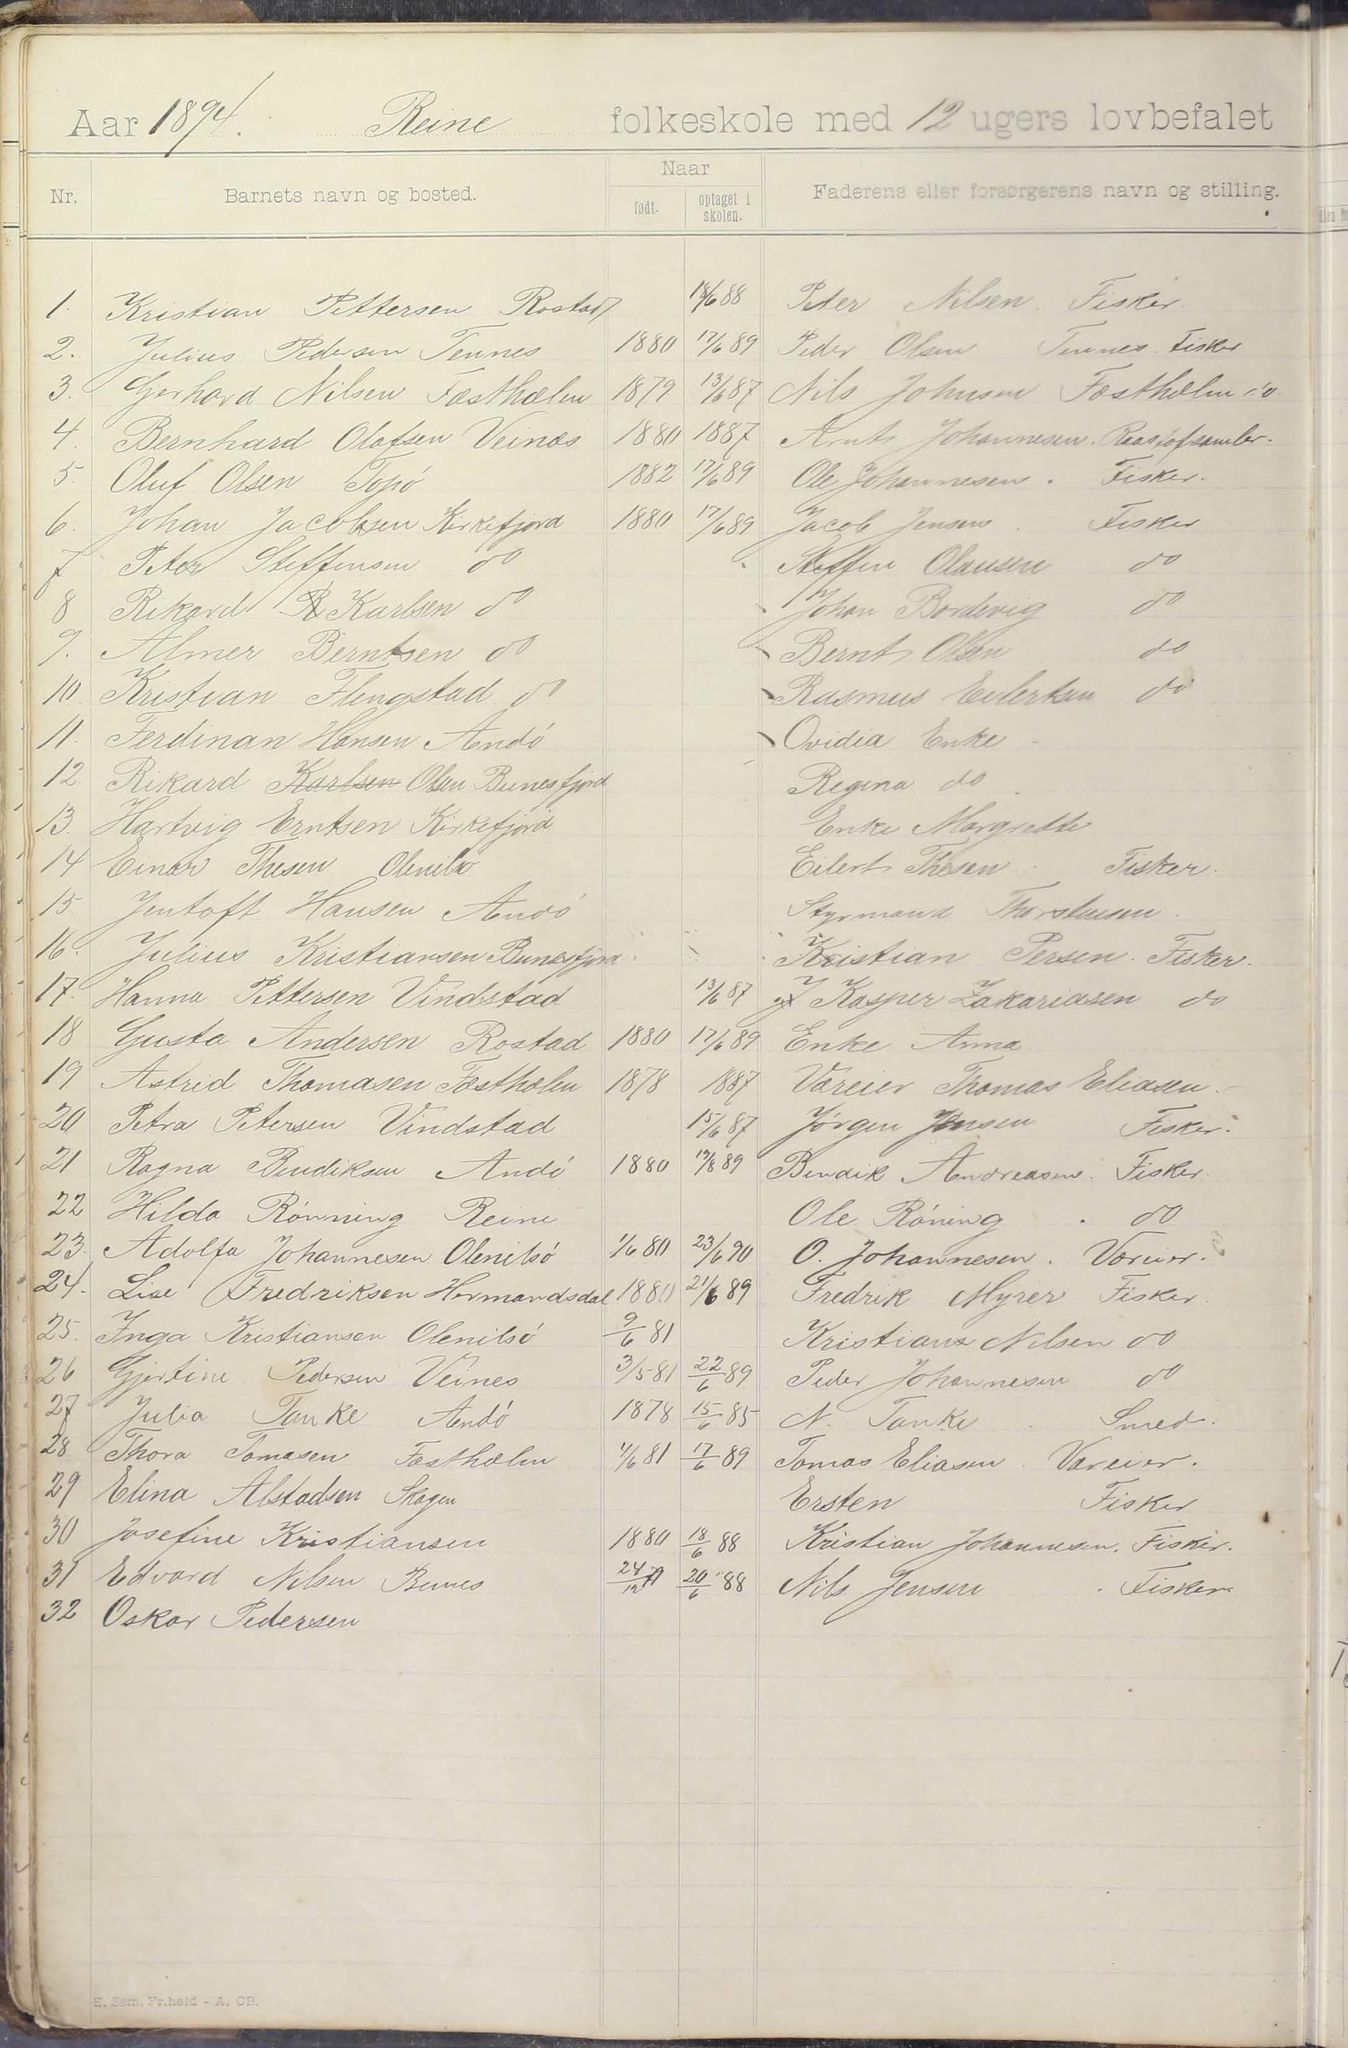 Aar 1894. Reine folkeskole med 12 ugers lovbefalet
Nr. Barnets navn og bosted. Naar født. optaget i skolen. Faderens eller forsørgerens navn og stilling.
1. Kristian Pettersen Rostad 18/6 88 Peter Nilsen. Fisker.
2. Julius Pedersen Tennes 1880 17/6 89 Peder Olsen Tennes. Fisker
3. Gerhard Nilsen Fastholm 1879 13/6 87 Nils Johnsen Fastholm do
4. Bernhard Olafsen Veinæs 1880 1887 Arnt Johannesen.
5. Oluf Olsen Topö 1882 17/6 89 Ole Johannesen. Fisker.
6. Johan Jacobsen Kirkefjord 1880 17/6 89 Jacob Jensen. Fisker
7 Peter Steffensen do Steffen Olausen do
8 Rikard Karlsen do Johan Bordevig do
9. Almer Berntsen do Bernt Olsen do
10 Kristian Flengstad do Rasmus Eilertsen do
11. Ferdinan Hansen Andö Ovidia Enke
12. Rikard Karlsen Olsen Bunesfjord Regina do
13. Hartvig Erntsen Kirkefjord Enke Margrethe
14 Einar Thesen Olenilsö Eilert Thesen Fisker.
15. Jentoft Hansen Andö Styrmand Thorstensen.
16. Julius Kristiansen Bunesfjord Kristian Persen. Fisker.
17. Hanna Pettersen Vindstad 13/6 87 J Kasper Zakariasen do
18 Gusta Andersen Rostad 1880 17/6 89 Enke Anna
19 Astrid Thomasen Fastholm 1878 1887 Væreier Thomas Eliasen.
20 Petra Petersen Vindstad 15/6 87 Jørgen Jensen Fisker.
21 Ragna Bendiksen Andö 1880 19/8 89 Bendik Andreasen. Fisker.
22 Hilda Rönning Reine Ole Röning. do
23. Adolfa Johannesen Olenilsö 1/6 80 23/6 90 O. Johannesen. Væreier.
24. Lise Fredriksen Hermandsdal 1880 21/6 89 Fredrik Myrer Fisker.
25. Inga Kristiansen Olenilsö 9/6 81 Kristian Nilsen do
26 Gjertine Pedersen Veines 3/5 81 22/6 89 Peder Johannesen do
27 Julia Tanke Andö 1878 15/6 85 N. Tanke. Smed.
28 Thora Tomasen Fastholm 1/6 81 17/6 89 Tomas Eliasen. Væreier.
29 Elina Alstadsen Skagen Ersten Fisker
30 Josefine Kristiansen 1880 18/6 88 Kristian Johannesen. Fisker.
31 Edvard Nilsen Bunes 24/12 79 20/6 88 Nils Jensen. Fisker
32 Oskar Pedersen
E. Sem, Fr.hald - A, CB.